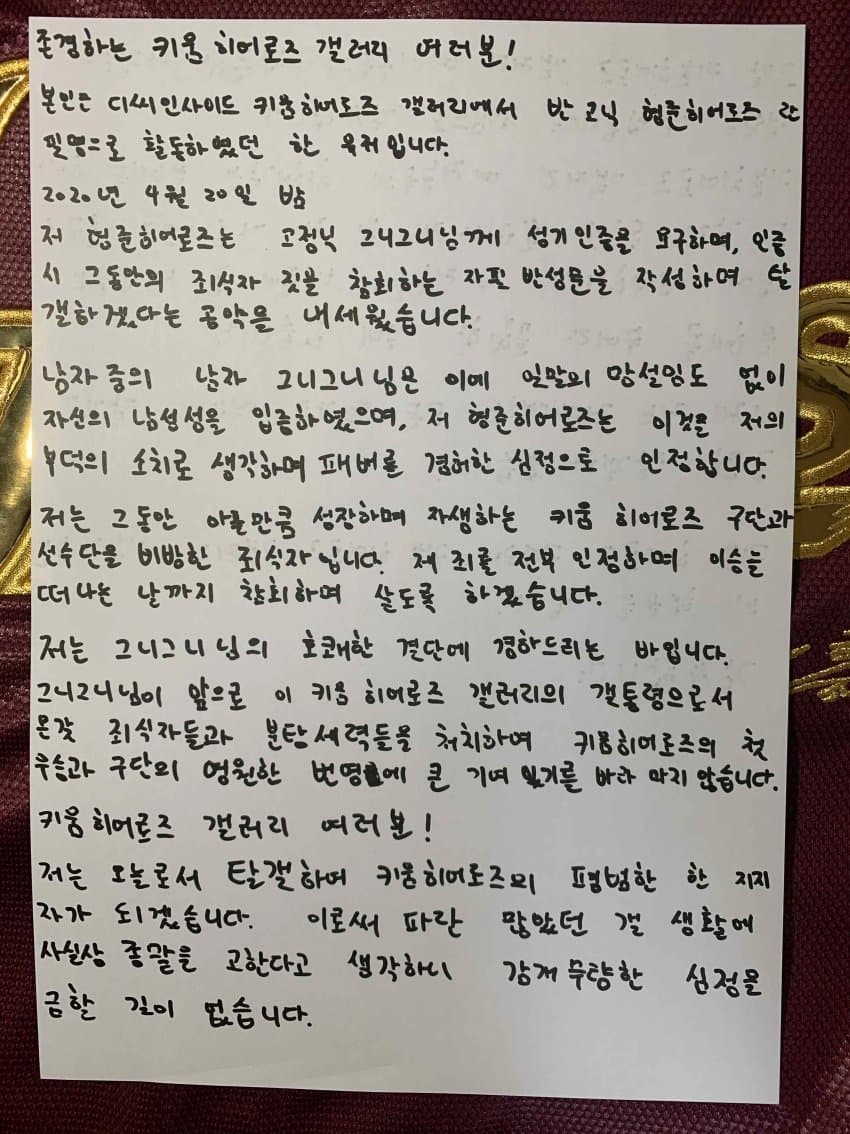 존경하는 키움 히어로즈 갤러리 여러분!
본인은 디씨인사이드 키움히어로즈 갤러리에서 반고닉 형준히어로즈 란
필명으로 활동하였던 한 유저입니다.
2020년 4월 20일 밤
저 형준히어로즈는 고정닉 그니그니님께 성기인증을 요구하며, 인증
시 그동안의 죄식자 짓을 참회하는 자필 반성문을 작성하며 탈
갤하겠다는 공약을 내세웠습니다.
남자 중의 남자 그니그니님은 이에 일말의 망설임도 없이
자신의 남성성을 입증하였으며, 저 형준히어로즈는 이것을 저의
부덕의 소치로 생각하며 패배를 겸허한 심정으로 인정합니다.
저는 그동안 아울만큼 성장하며 자생하는 키움 히어로즈 구단과
선수단을 비방한 죄식자입니다. 제 죄를 전부 인정하며 이승을
떠나는 날까지 참회하며 살도록 하겠습니다.
저는 그니그니님의 호쾌한 결단에 경하드리는 바입니다.
그니그니님이 앞으로 이 키움 히어로즈 갤러리의 갤통령으로서
온갖 죄식자들과 분탕세력들을 처치하여 키움히어로즈의 첫
우승과 구단의 영원한 번영에 큰 기여 있기를 바라 마지 않습니다.
키움히어로즈 갤러리 여러분!
저는 오늘로서 탈갤하여 키움히어로즈의 평범한 한 지지
자가 되겠습니다. 이로써 파란 많았던 갤 생활에
사실상 종말을 고한다고 생각하니 감개무량한 심정을
금할 길이 없습니다.